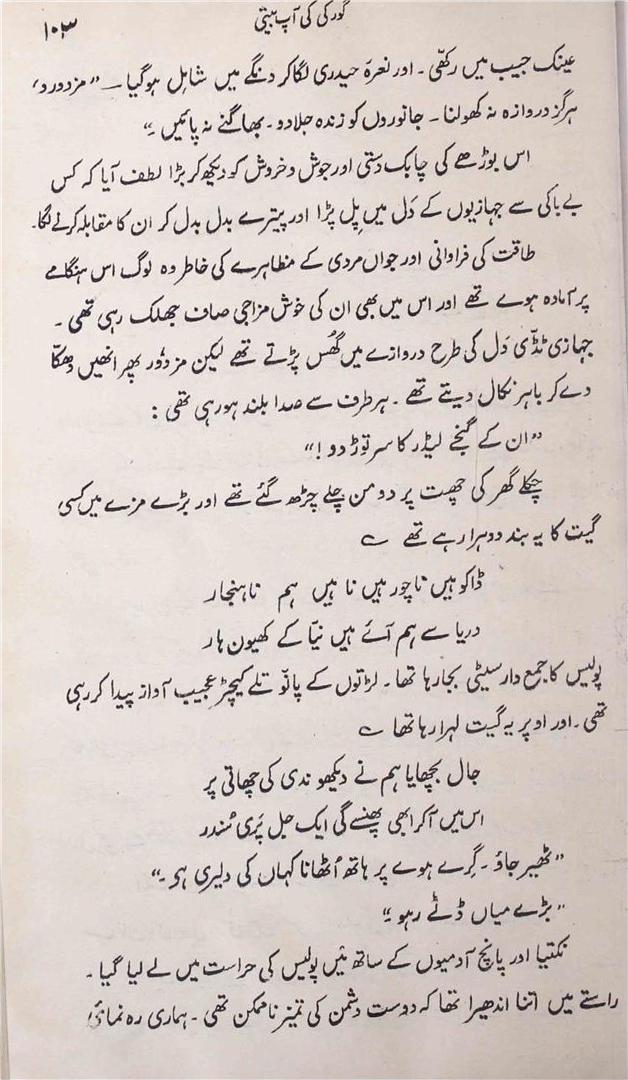 گورکی کی آپ بیتی
۱۰۳
عینک جیب میں رکھّی ۔ اور نعرۂ حیدری لگا کر دنگے میں شامل ہو گیا ۔ ”مزدورو،
ہرگز دروازہ نہ کھولنا ۔ جانوروں کو زندہ جلا دو ۔ بھاگنے نہ پائیں ۔“
اس بوڑھے کی چابک دستی اور جوش و خروش کو دیکھ کر بڑا لطف آیا کہ کس
بے باکی سے جہازیوں کے دَل میں پِل پڑا اور پیترے بدل بدل کر ان کا مقابلہ کرنے لگا۔
طاقت کی فراوانی اور جواں مردی کے مظاہرے کی خاطر وہ لوگ اس ہنگامے
پر آمادہ ہوے تھے اور اس میں بھی ان کی خوش مزاجی صاف جھلک رہی تھی ۔
جہازی ٹڈّی دَل کی طرح دروازے میں گھُس پڑتے تھے لیکن مزدُور پھر انھیں دھکّا
دے کر باہر نکال دیتے تھے ۔ ہر طرف سے صدا بلند ہو رہی تھی :
”ان کے گنجے لیڈر کا سر توڑ دو !“
چکلے گھر کی چھت پر دو من چلے چڑھ گئے تھے اور بڑے مزے میں کسی
گیت کا یہ بند دوہرا رہے تھے ؎
ڈاکو ہیں نا چور ہیں نا ہیں ہم ناہنجار
دریا سے ہم آئے ہیں نیّا کے کھیون ہار
پولیس کا جمع دار سیٹی بجا رہا تھا ۔ لڑتوں کے پانو تلے کیچڑ عجیب آواز پیدا کر رہی
تھی ۔ اور اوپر یہ گیت لہرا رہا تھا ؎
جال بچھایا ہم نے دیکھو ندی کی چھاتی پر
اس میں آکر ابھی پھنسے گی ایک جل پَری سُندر
”ٹھیر جاؤ ۔ گِرے ہوے پر ہاتھ اُٹھانا کہاں کی دلیری ہی ۔“
”بڑے میاں ڈٹے رہو ۔“
نکتیا اور پانچ آدمیوں کے ساتھ مَیں پولیس کی حراست میں لے لیا گیا ۔
راستے میں اتنا اندھیرا تھا کہ دوست دشمن کی تمیز ناممکن تھی ۔ ہماری رہ نمائی